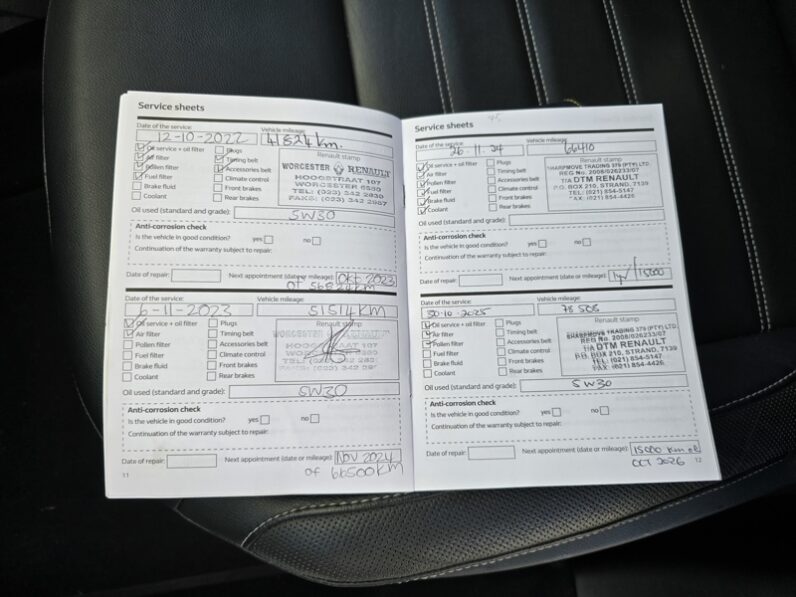 Service sheets
Date of the service: Vehicle mileage:
12-10-2022 41824 km.
Oil service + oil filter Plugs Renault stamp
Air filter Timing belt WORCESTER RENAULT
Pollen filter Accessories belt HOOGSTRAAT 107
Fuel filter Climate control WORCESTER 6850
Brake fluid Front brakes TEL: (023) 342 2830
Coolant Rear brakes FAKS: (023) 342 2987
Oil used (standard and grade): 5W30
Anti-corrosion check
Is the vehicle in good condition? yes no
Continuation of the warranty subject to repair:
Date of repair: Next appointment (date or mileage): Okt 2023
of 56824km
Date of the service: Vehicle mileage:
6-11-2023 51514KM
Oil service + oil filter Plugs Renault stamp
Air filter Timing belt WORCESTER RENAULT
Pollen filter Accessories belt HOOGSTRAAT 107
Fuel filter Climate control
Brake fluid Front brakes TEL:
Coolant Rear brakes
Oil used (standard and grade): 5W30
Anti-corrosion check
Is the vehicle in good condition? yes no
Continuation of the warranty subject to repair:
Date of repair: Next appointment (date or mileage): NOV 2024
of 66500KM
11
Service sheets
Date of the service: Vehicle mileage:
26.11.24 66410
Oil service + oil filter Plugs Renault stamp
Air filter Timing belt SHARPMOVE TRADING 375 (PTY) LTD.
Pollen filter Accessories belt REG No. 2008/026233/07
Fuel filter Climate control T/A DTM RENAULT
Brake fluid Front brakes P.O. BOX 210, STRAND, 7139
Coolant Rear brakes TEL: (021) 854-5147
FAX: (021) 854-4426
Oil used (standard and grade):
Anti-corrosion check
Is the vehicle in good condition? yes no
Continuation of the warranty subject to repair:
Date of repair: Next appointment (date or mileage): 1yr/15000
Date of the service: Vehicle mileage:
30-10-2025 78 588
Oil service + oil filter Plugs Renault stamp
Air filter Timing belt SHARPMOVE TRADING 375 (PTY) LTD.
Pollen filter Accessories belt REG No. 2008/026233/07
Fuel filter Climate control T/A DTM RENAULT
Brake fluid Front brakes P.O. BOX 210, STRAND, 7139
Coolant Rear brakes TEL: (021) 854-5147
FAX: (021) 854-4426
Oil used (standard and grade): 5W30
Anti-corrosion check
Is the vehicle in good condition? yes no
Continuation of the warranty subject to repair:
Date of repair: Next appointment (date or mileage): 15000 km or
OCT 2026
12